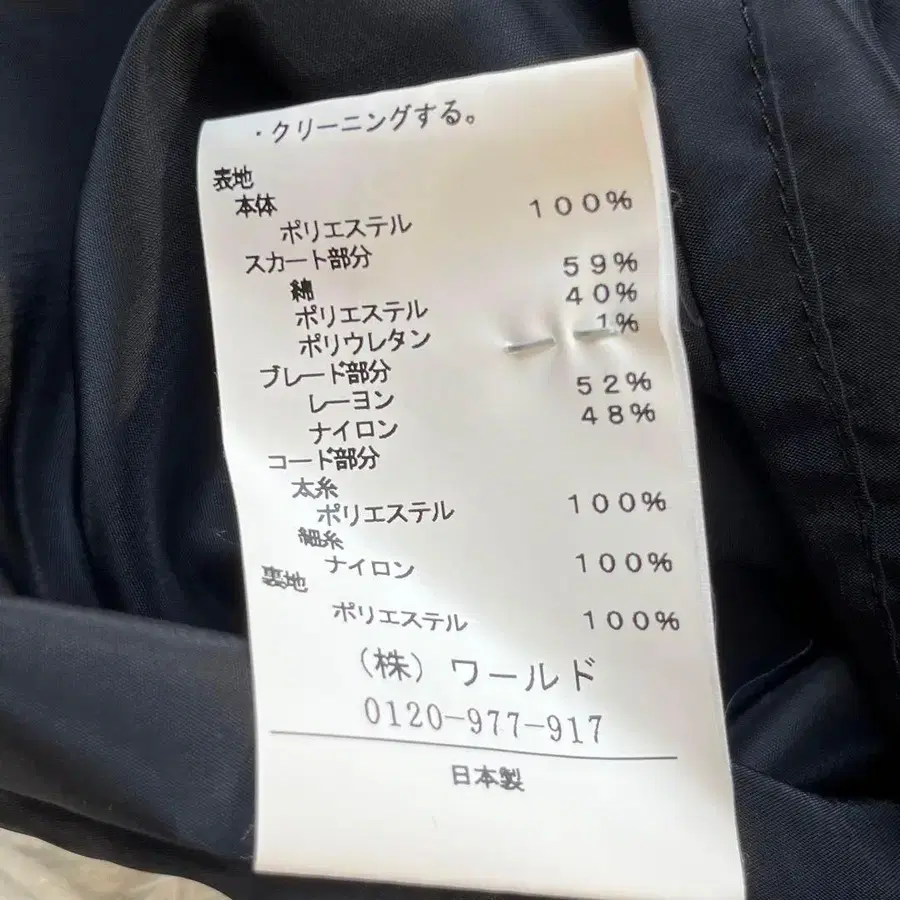 ・クリーニングする。
表地
本体
ポリエステル 100%
スカート部分
綿 59%
ポリエステル 40%
ポリウレタン 1%
ブレード部分
レーヨン 52%
ナイロン 48%
コード部分
太糸
ポリエステル 100%
細糸
ナイロン 100%
裏地
ポリエステル 100%
(株) ワールド
0120-977-917
日本製